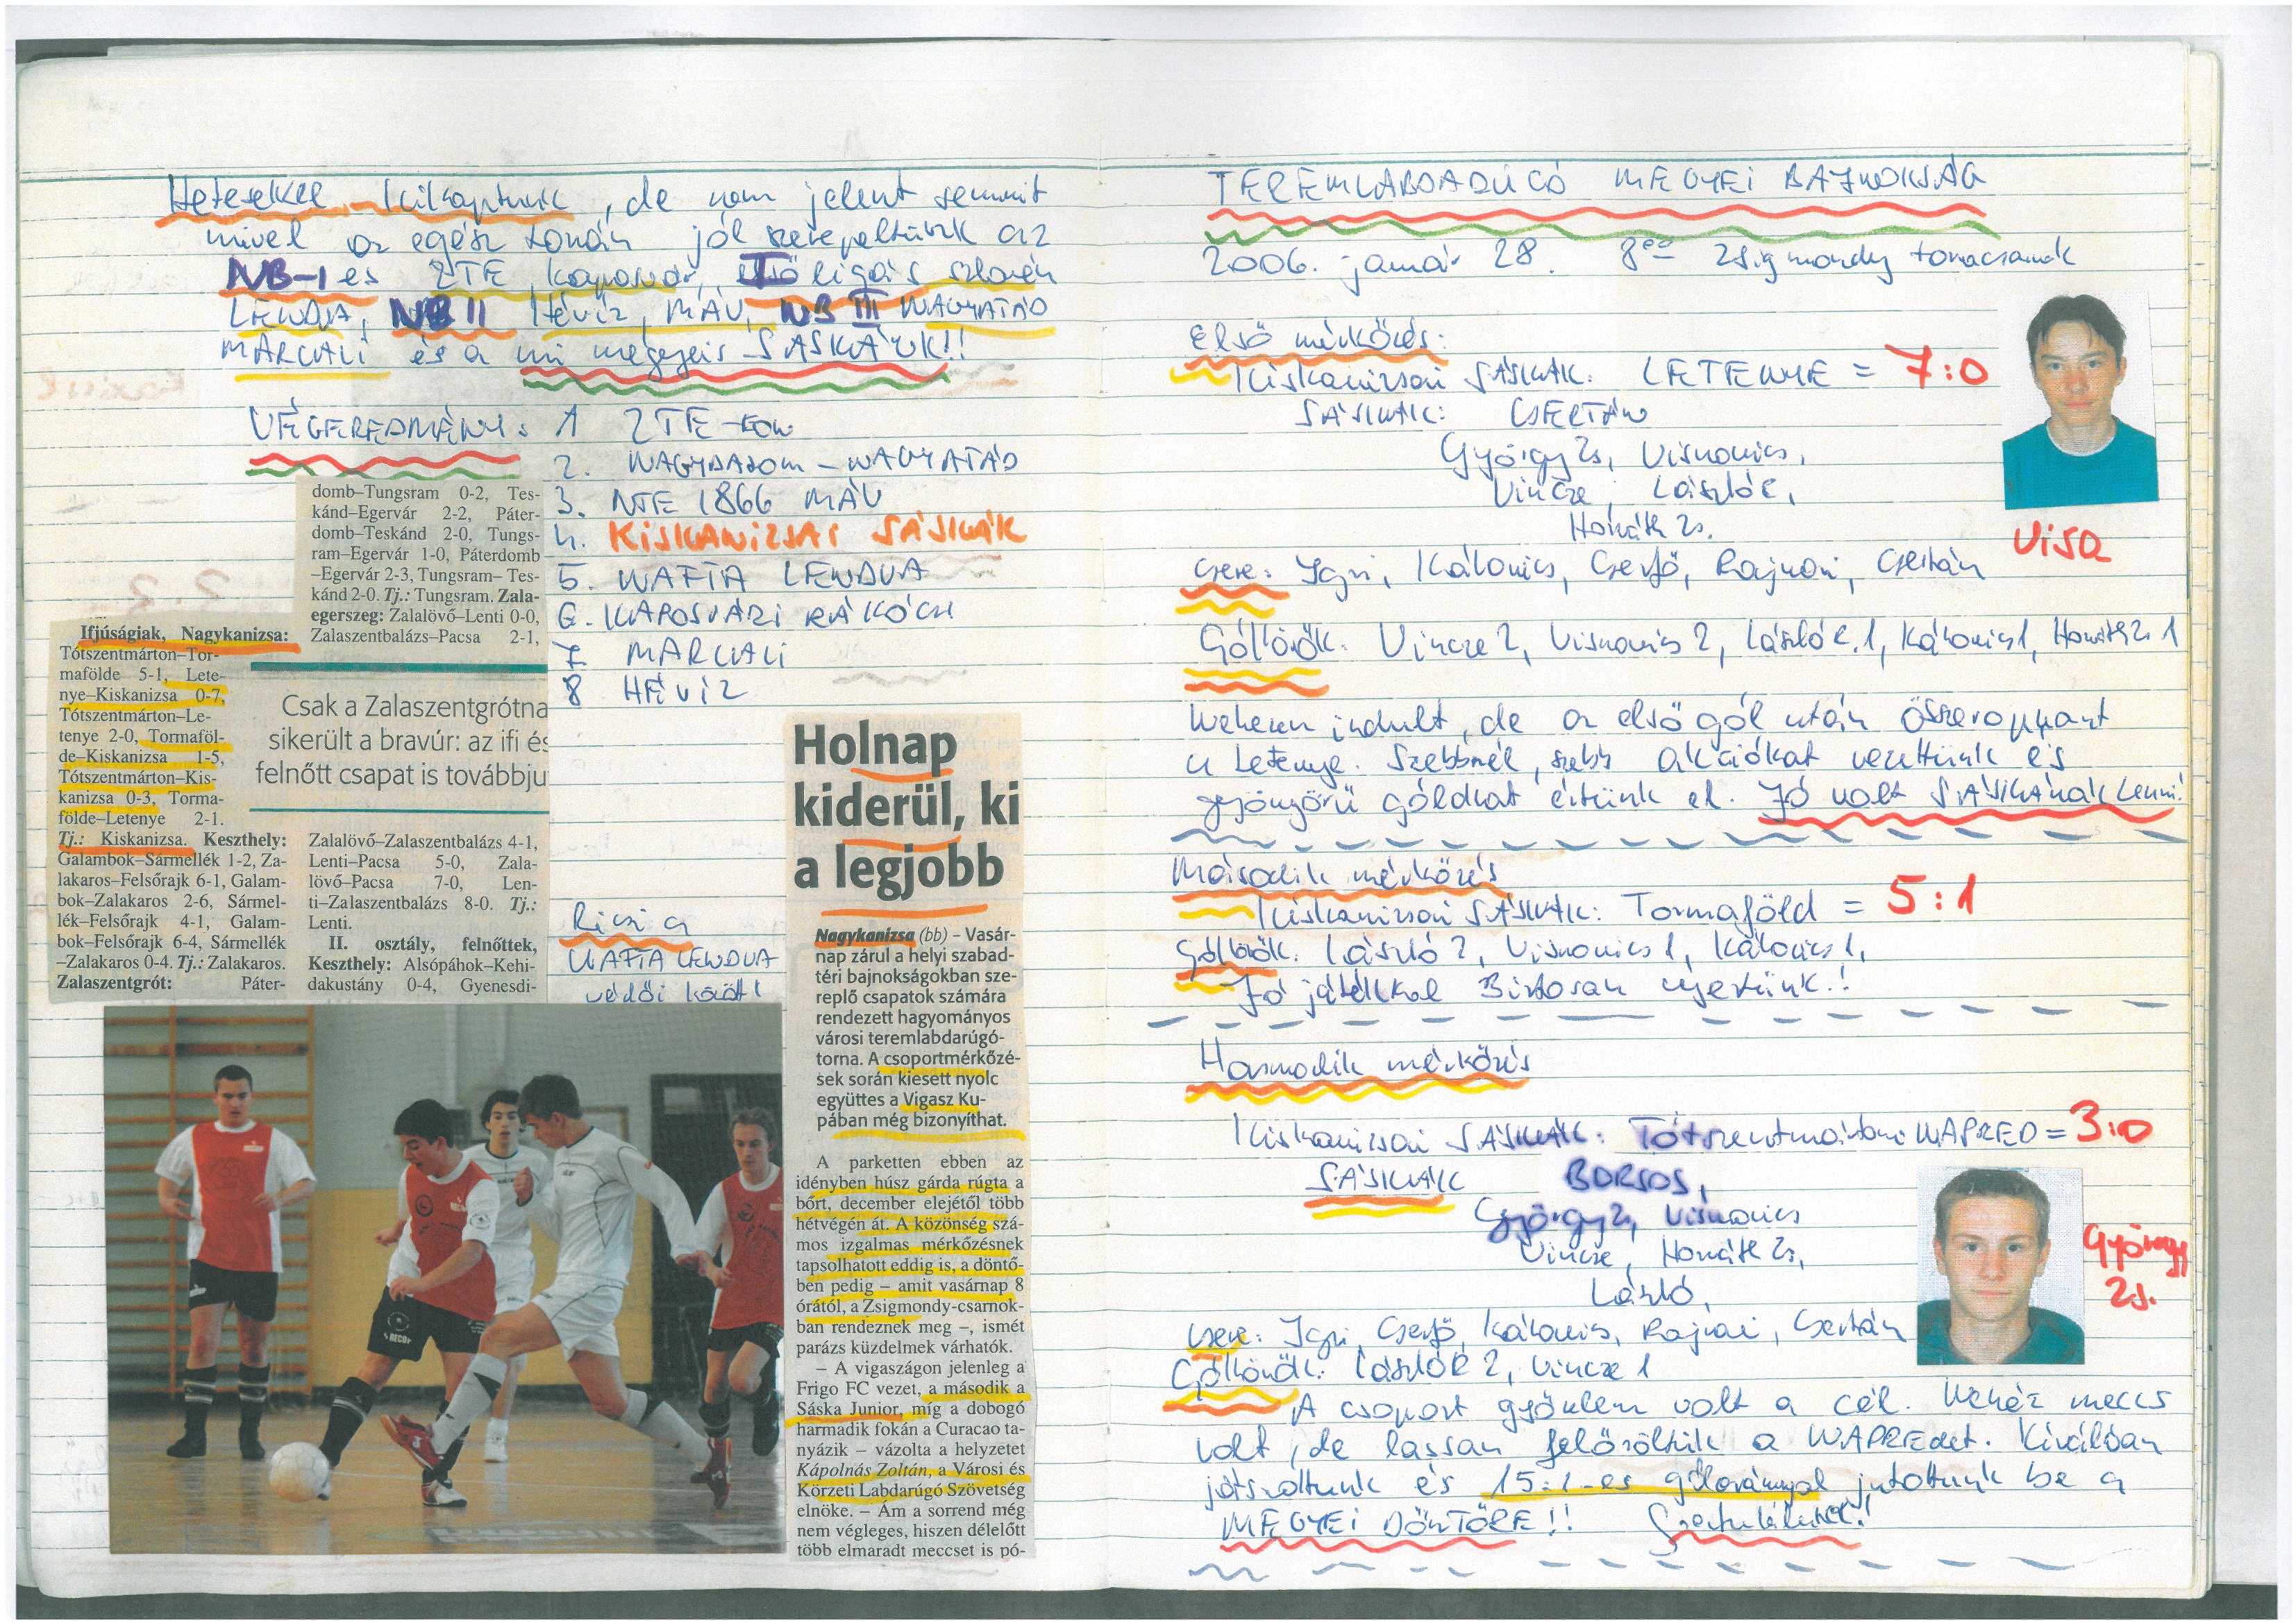 Hetesekkel kikaptunk, de nem jelent semmit
mivel az egész tornán jól szerepeltünk az
NB-I es ZTE, Kaposvár, I első ligás szlovén
LENDVA, NB II Hévíz, MÁV, NB III NAGYATÁD
MARCALI és a mi megyeis SÁSKÁUK!!
VÉGEREDMÉNY: 1 ZTE-FOW
2. NAGYBAJOM - NAGYATÁD
3. NTE 1866 MÁV
4. KISKANIZSAI SÁSKÁK
5. NAFTA LENDVA
6. KAPOSVÁRI RÁKÓCZI
7 MARCALI
8 HÉVÍZ
domb–Tungsram 0-2, Tes-
kánd–Egervár 2-2, Páter-
domb–Teskánd 2-0, Tungs-
ram–Egervár 1-0, Páterdomb
–Egervár 2-3, Tungsram– Tes-
kánd 2-0. Tj.: Tungsram. Zala-
egerszeg: Zalalövő–Lenti 0-0,
Zalaszentbalázs–Pacsa 2-1,
Ifjúságiak, Nagykanizsa:
Tótszentmárton–Tor-
mafölde 5-1, Lete-
nye–Kiskanizsa 0-7,
Tótszentmárton–Le-
tenye 2-0, Tormaföl-
de–Kiskanizsa 1-5,
Tótszentmárton–Kis-
kanizsa 0-3, Torma-
földe–Letenye 2-1.
Tj.: Kiskanizsa. Keszthely:
Galambok–Sármellék 1-2, Za-
lakaros–Felsőrajk 6-1, Galam-
bok–Zalakaros 2-6, Sármel-
lék–Felsőrajk 4-1, Galam-
bok–Felsőrajk 6-4, Sármellék
–Zalakaros 0-4. Tj.: Zalakaros.
Zalaszentgrót: Páter-
Csak a Zalaszentgrótna
sikerült a bravúr: az ifi és
felnőtt csapat is továbbju
Zalalövő–Zalaszentbalázs 4-1,
Lenti–Pacsa 5-0, Zala-
lövő–Pacsa 7-0, Len-
ti–Zalaszentbalázs 8-0. Tj.:
Lenti.
II. osztály, felnőttek,
Keszthely: Alsópáhok–Kehi-
dakustány 0-4, Gyenesdi-
Ricsi a
NAFTA LENDVA
védői között
Holnap
kiderül, ki
a legjobb
Nagykanizsa (bb) – Vasár-
nap zárul a helyi szabad-
téri bajnokságokban sze-
replő csapatok számára
rendezett hagyományos
városi teremlabdarúgó-
torna. A csoportmérkőzé-
sek során kiesett nyolc
együttes a Vigasz Ku-
pában még bizonyíthat.
A parketten ebben az
idényben húsz gárda rúgta a
bőrt, december elejétől több
hétvégén át. A közönség szá-
mos izgalmas mérkőzésnek
tapsolhatott eddig is, a döntő-
ben pedig – amit vasárnap 8
órától, a Zsigmondy-csarnok-
ban rendeznek meg –, ismét
parázs küzdelmek várhatók.
– A vigaszágon jelenleg a
Frigo FC vezet, a második a
Sáska Junior, míg a dobogó
harmadik fokán a Curacao ta-
nyázik – vázolta a helyzetet
Kápolnás Zoltán, a Városi és
Körzeti Labdarúgó Szövetség
elnöke. – Ám a sorrend még
nem végleges, hiszen délelőtt
több elmaradt meccset is pó-
TEREMLABDARÚGÓ MEGYEI BAJNOKSÁG
2006. január 28. 8⁰⁰ Zsigmondy tornacsarnok
Első mérkőzés:
Kiskanizsai SÁSKÁK: LETENYE = 7:0
SÁSKÁK: CSERTÁN
György Zs, Visnovics,
Vincze, László R,
Horváth Zs.
Visa
csere: Igri, Kálovics, Cserjő, Rajnai, Csertán
Góllövők: Vincze 2, Visnovics 2, László R. 1, Kálovics 1, Horváth Zs 1
Nehezen indult, de az első gól után összeroppant
a Letenye. Szebbnél, szebb akciókat vezettünk és
gyönyörű gólokat értünk el. Jó volt SÁSKÁNAK Lenni!
Második mérkőzés
Kiskanizsai SÁSKÁK: Tormaföld = 5:1
Góllövők: László 2, Visnovics 1, Kálovics 1,
Jó játékkal Biztosan nyertünk!
Harmadik mérkőzés
Kiskanizsai SÁSKÁK: Tótszentmártoni NAPRED = 3:0
SÁSKÁK BORSOS,
György Zs, Visnovics
Vincze, Horváth Zs,
László,
György
Zs.
csere: Igri, Cserjő, Kálovics, Rajnai, Csertán
Góllövők: László R 2, Vincze 1
A csoport győzelem volt a cél. Nehéz meccs
volt, de lassan felőröltük a NAPREDet. Kiválóan
játszottunk és 15:1-es gólaránnyal jutottunk be a
MEGYEI DÖNTŐRE!! Gratulálunk!